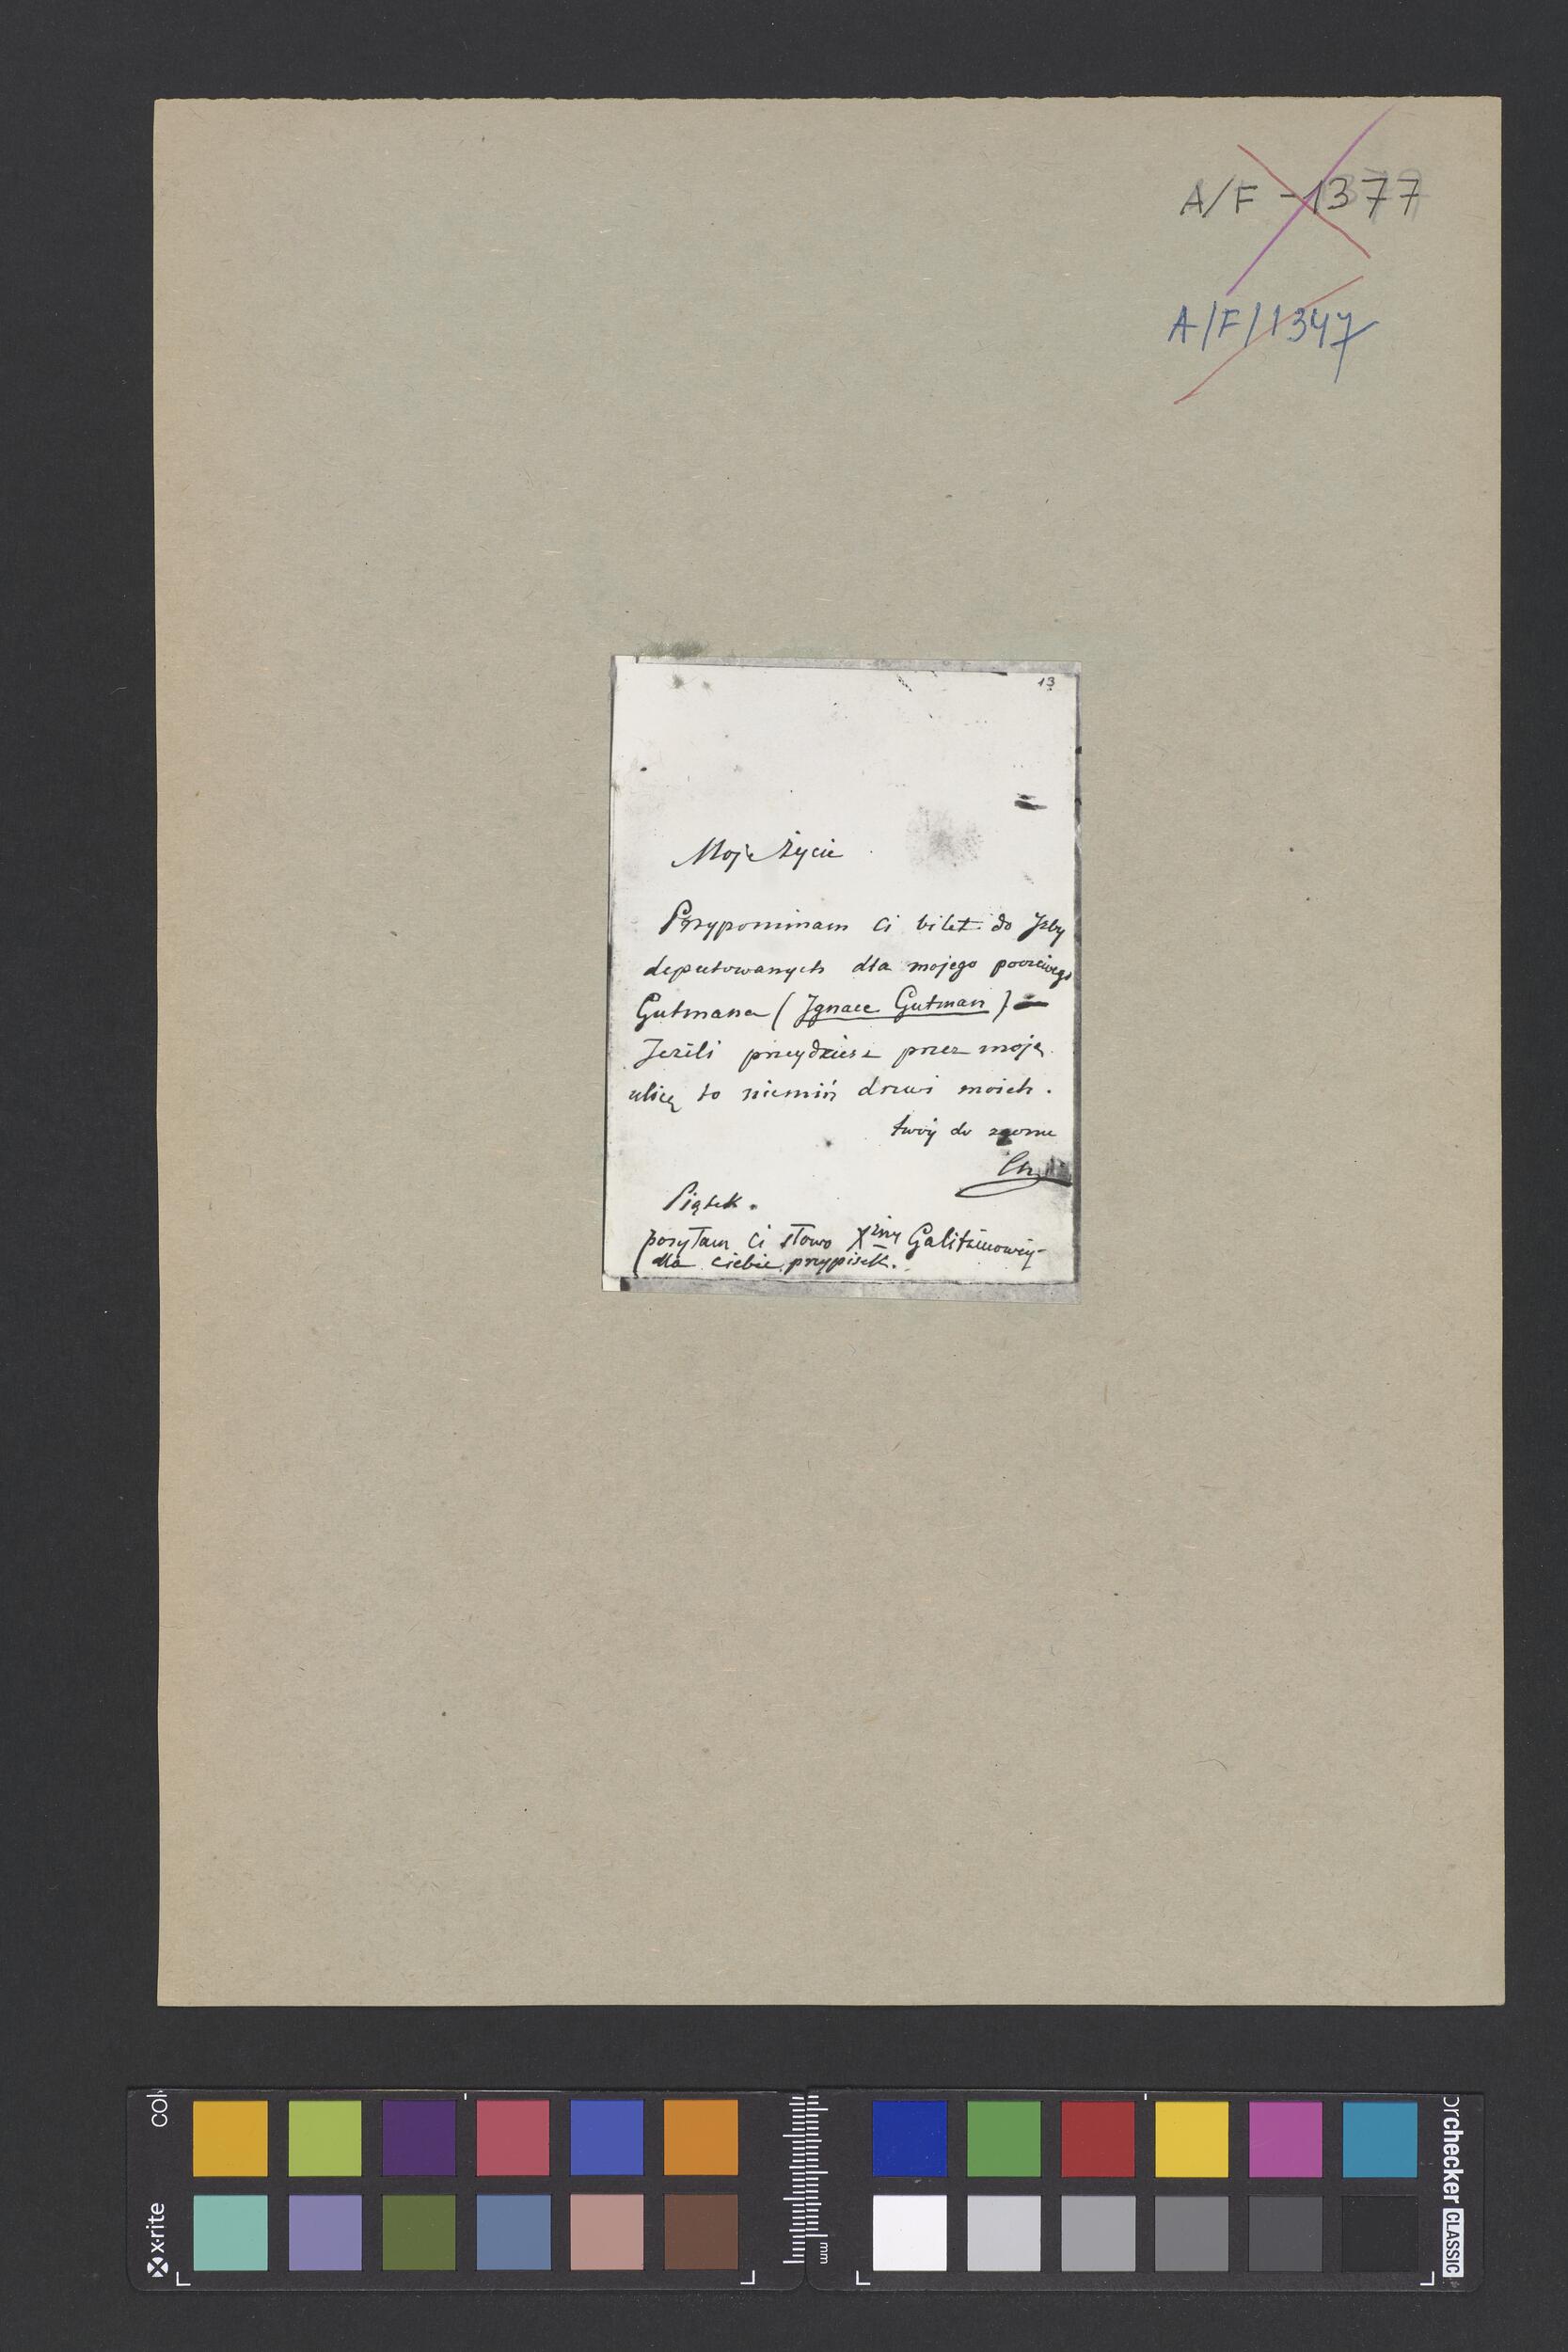 A/F-1377
A/F/1347
13
Moje Życie
Przypominam Ci bilet do Jzby
deputowanych dla mojego poczciwego
Gutmana (Jgnace Gutman) =
Jeżeli przeydziesz przez moję
ulicę to niemiń drzwi moich.
twój do zgonu
Ch
Piątek.
posyłam Ci słowo Xżny Galitzinowéy
(dla ciebie przypisek.
colorchecker CLASSIC
x-rite
mm